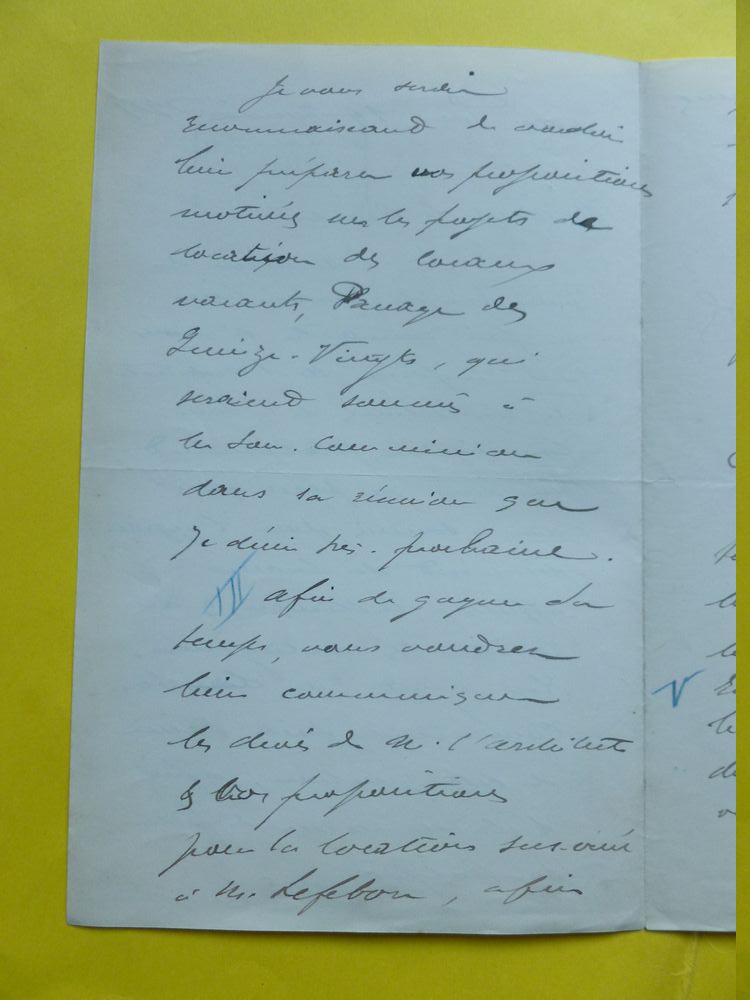 Je vous serai
reconnaissant de vouloir
bien préparer vos propositions
motivées sur les projets de
location des locaux
vacants, Passage des
Quinze-Vingts, qui
seraient soumis à
la Sous-Commission
dans sa réunion que
je désire très-prochaine.
III afin de gagner du
temps, vous voudrez
bien communiquer
les devis de M. l'architecte
& vos propositions
pour la location sus-visée
à M. Lefebvre, afin
V